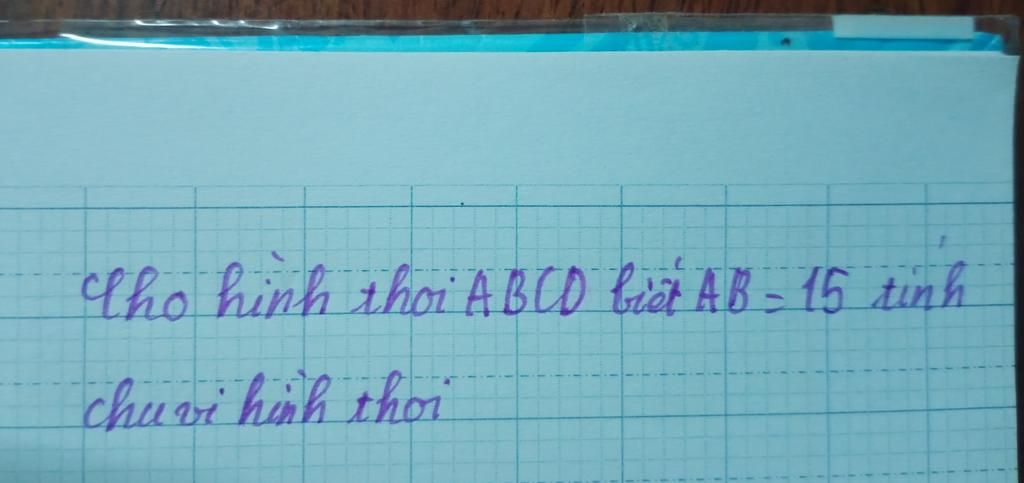 Cho hình thoi ABCD biết AB = 15 tính
chu vi hình thoi